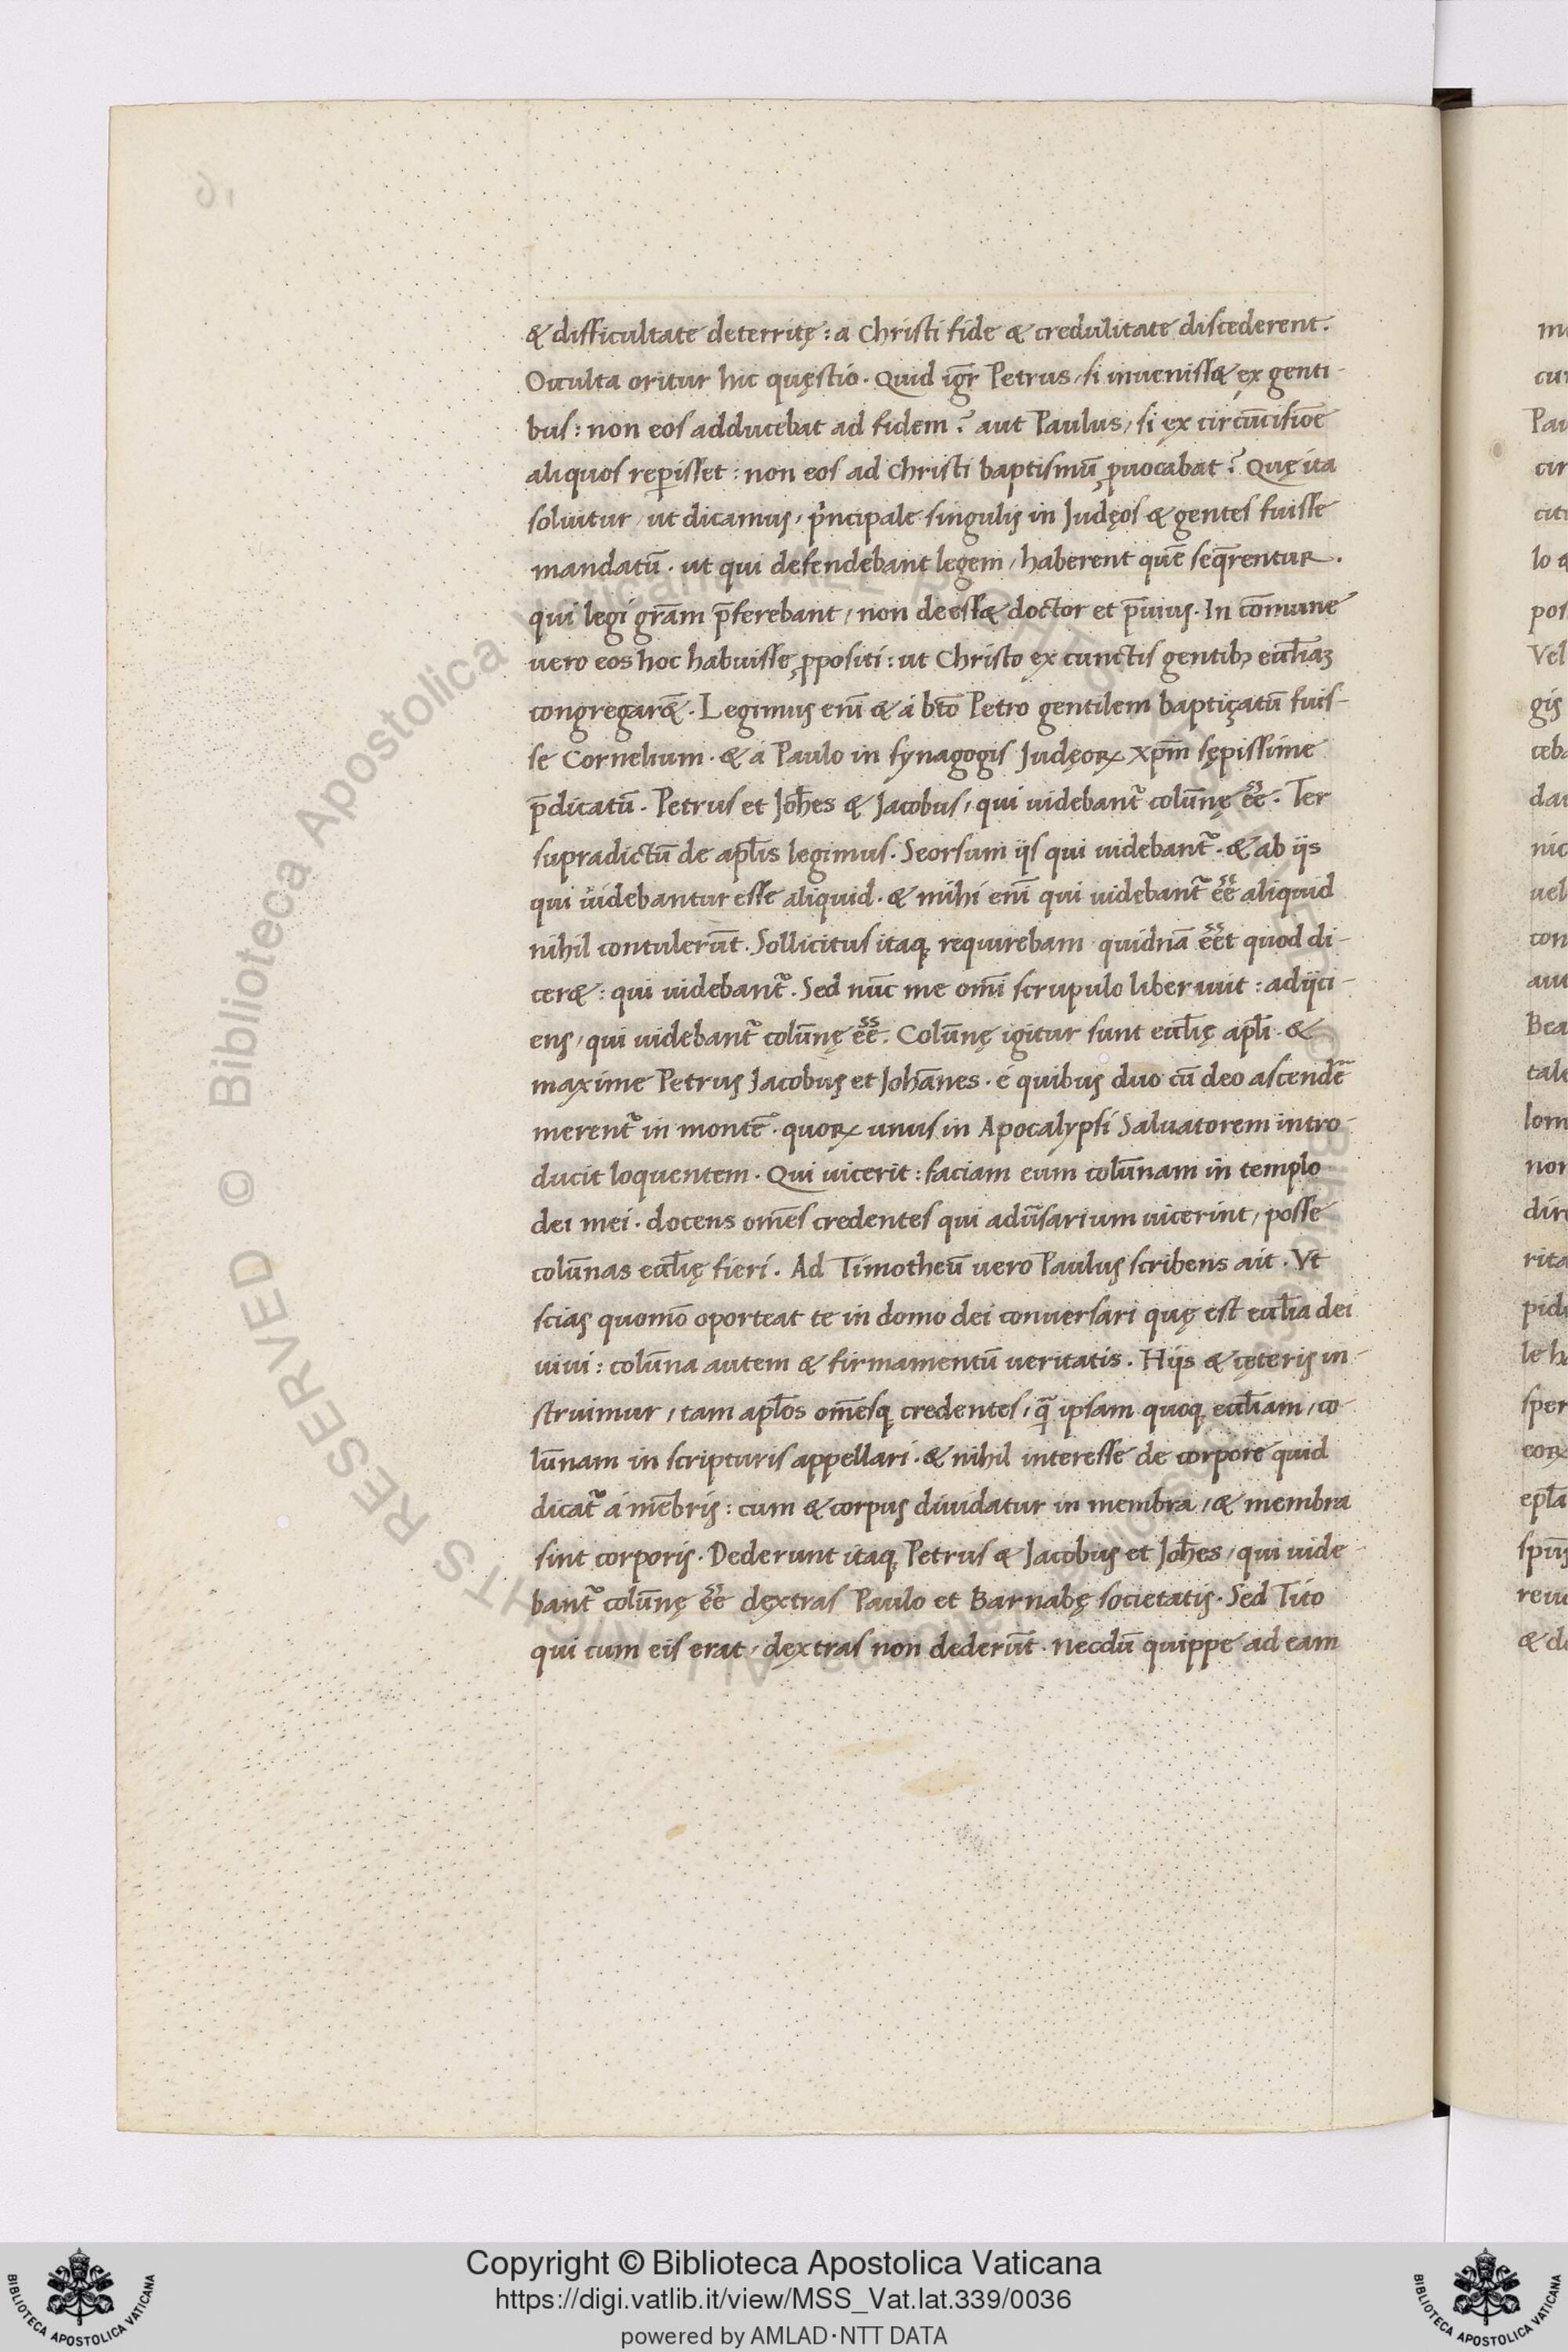 & difficultate deterritę: a Christi fide & credulitate discederent.
Occulta oritur hic quęstio. Quid igr̄ Petrus, si inuenisset ex genti-
bus: non eos adducebat ad fidem? aut Paulus, si ex circūcisiōe
aliquos repperisset: non eos ad Christi baptismū ꝓuocabat? Quę ita
soluitur, ut dicamus, pͥncipale singulis in Judęos & gentes fuisse
mandatū. ut qui defendebant legem, haberent quē seq̄rentur.
qui legi grām p̄ferebant, non deesset doctor et p̄uius. In cōmune
uero eos hoc habuisse ꝓpositi: ut Christo ex cunctis gentibꝫ ecclīaꝫ
congregarēt. Legimus enī & á btō Petro gentilem baptiçatū fuis-
se Cornelium. & á Paulo in synagogis Judęoꝝ xp̄m sępissime
p̄dicatū. Petrus et Joh̄es & Jacobus, qui uidebantᷣ colūnę eē̄. Ter
supradictū de apl̄is legimus. Seorsum ijs qui uidebantᷣ. & ab ijs
qui uidebantur esse aliquid. & mihi enī qui uidebantᷣ eē̄ aliquid
nihil contulerūt. Sollicitus itaqꝫ requirebam quidnā eēt̄ quod di-
ceret: qui uidebantᷣ. Sed nūc me omī scrupulo liberauit: adijci-
ens, qui uidebantᷣ colūnę eē̄. Colūnę igitur sunt eccl̄ię apl̄i. &
maxime Petrus Jacobus et Johānes. é quibus duo cū deo ascendē
merentᷣ in montē. quoꝝ unus in Apocalypsi Saluatorem intro-
ducit loquentem. Qui uicerit: faciam eum colūnam in templo
dei mei. docens om̄es credentes qui adūsarium uicerint, posse
colūnas eccl̄ię fieri. Ad Timotheū uero Paulus scribens ait. Vt
scias quomō oporteat te in domo dei conuersari quę est eccl̄ia dei
uiui: colūna autem & firmamentū ueritatis. Hijs & cęteris in-
struimur, tam apl̄os om̄esqꝫ credentes, q̄ ipsam quoqꝫ eccl̄iam, co-
lūnam in scripturis appellari. & nihil interesse de corpore quid
dicatᷣ á mēbris: cum & corpus diuidatur in membra, & membra
sint corporis. Dederunt itaqꝫ Petrus & Jacobus et Joh̄es, qui uide-
bantᷣ colūnę eē̄ dextras Paulo et Barnabę societatis. Sed Tito
qui cum eis erat, dextras non dederūt. necdū quippe ad eam
© Biblioteca Apostolica Vaticana
ALL RIGHTS RESERVED
Copyright © Biblioteca Apostolica Vaticana
https://digi.vatlib.it/view/MSS_Vat.lat.339/0036
powered by AMLAD·NTT DATA
BIBLIOTECA APOSTOLICA VATICANA
BIBLIOTECA APOSTOLICA VATICANA